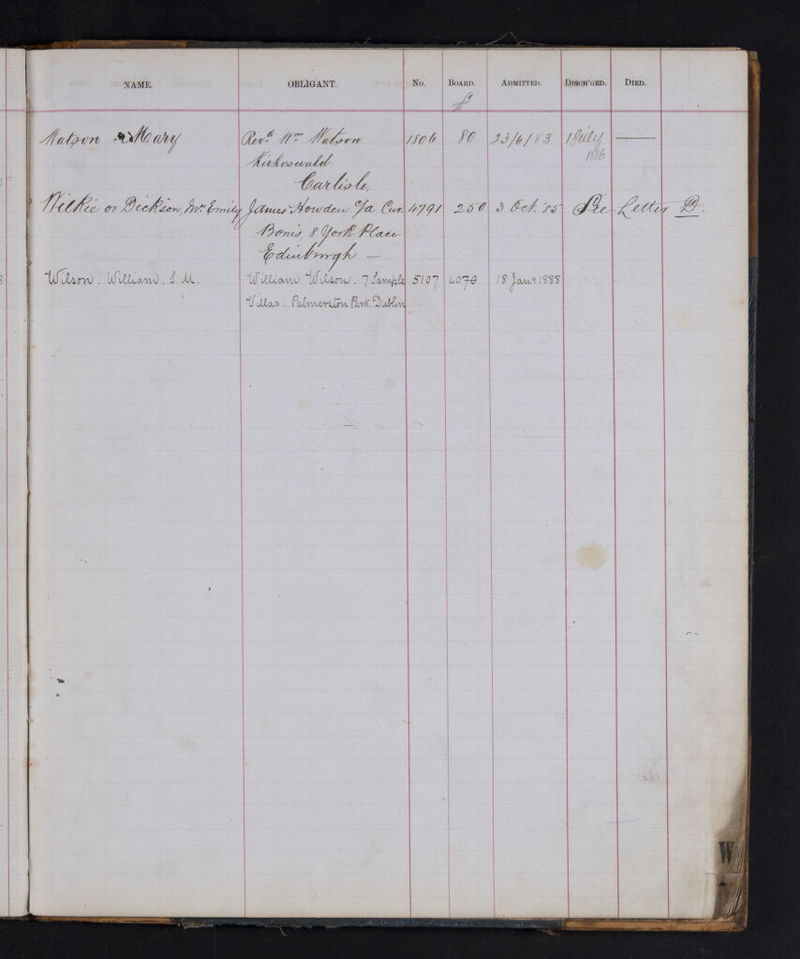 NAME. OBLIGANT. No. BOARD. ADMITTED. DISCH'GED. DIED.
£
Watson Mary Revd. Wm. Watson 80 23/6/83 1 July
Kirkoswald 1886
Carlisle
Wilkie or Dickson, Mrs Emily James Howden C/a Cur. 4791 250 3 Oct. 85 See Letter D.
Bonis, 8 York Place
Edinburgh
Wilson. William. S. M. William Wilson. 7 Sample 5107 18 Jany 1888
Villas. Palmerston Park. Dublin
W